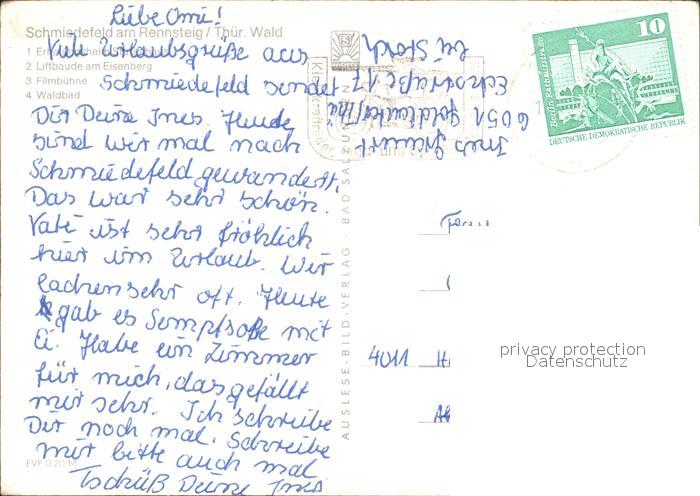 Liebe Omi!
Schmiedefeld am Rennsteig / Thür. Wald
Viele Urlaubsgrüße aus
2 Liftbaude am Eisenberg
Schmiedefeld sendet
3 Filmbühne
4 Waldbad
Dir Deine Ines. Heute
sind wir mal nach
Schmiedefeld gewandert.
Das war sehr schön.
Vati ist sehr fröhlich
hier im Urlaub. Wir
lachen sehr oft. Heute
gab es Senfsoße mit
Ei. Habe ein Zimmer
für mich, das gefällt
mir sehr. Ich schreibe
Dir noch mal. Schreibe
mir bitte auch mal
Tschüß Deine Ines
EVP 0,20 M
AUSLESE-BILD-VERLAG · BAD SALZUNGEN
Ines
6051
17
bei
10
Berlin, Rathausstraße
DEUTSCHE DEMOKRATISCHE REPUBLIK
4011 H
privacy protection
Datenschutz